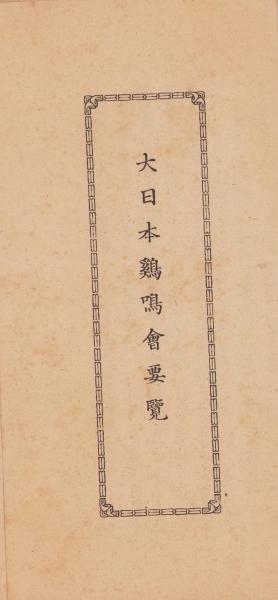 大日本鷄鳴會要覽